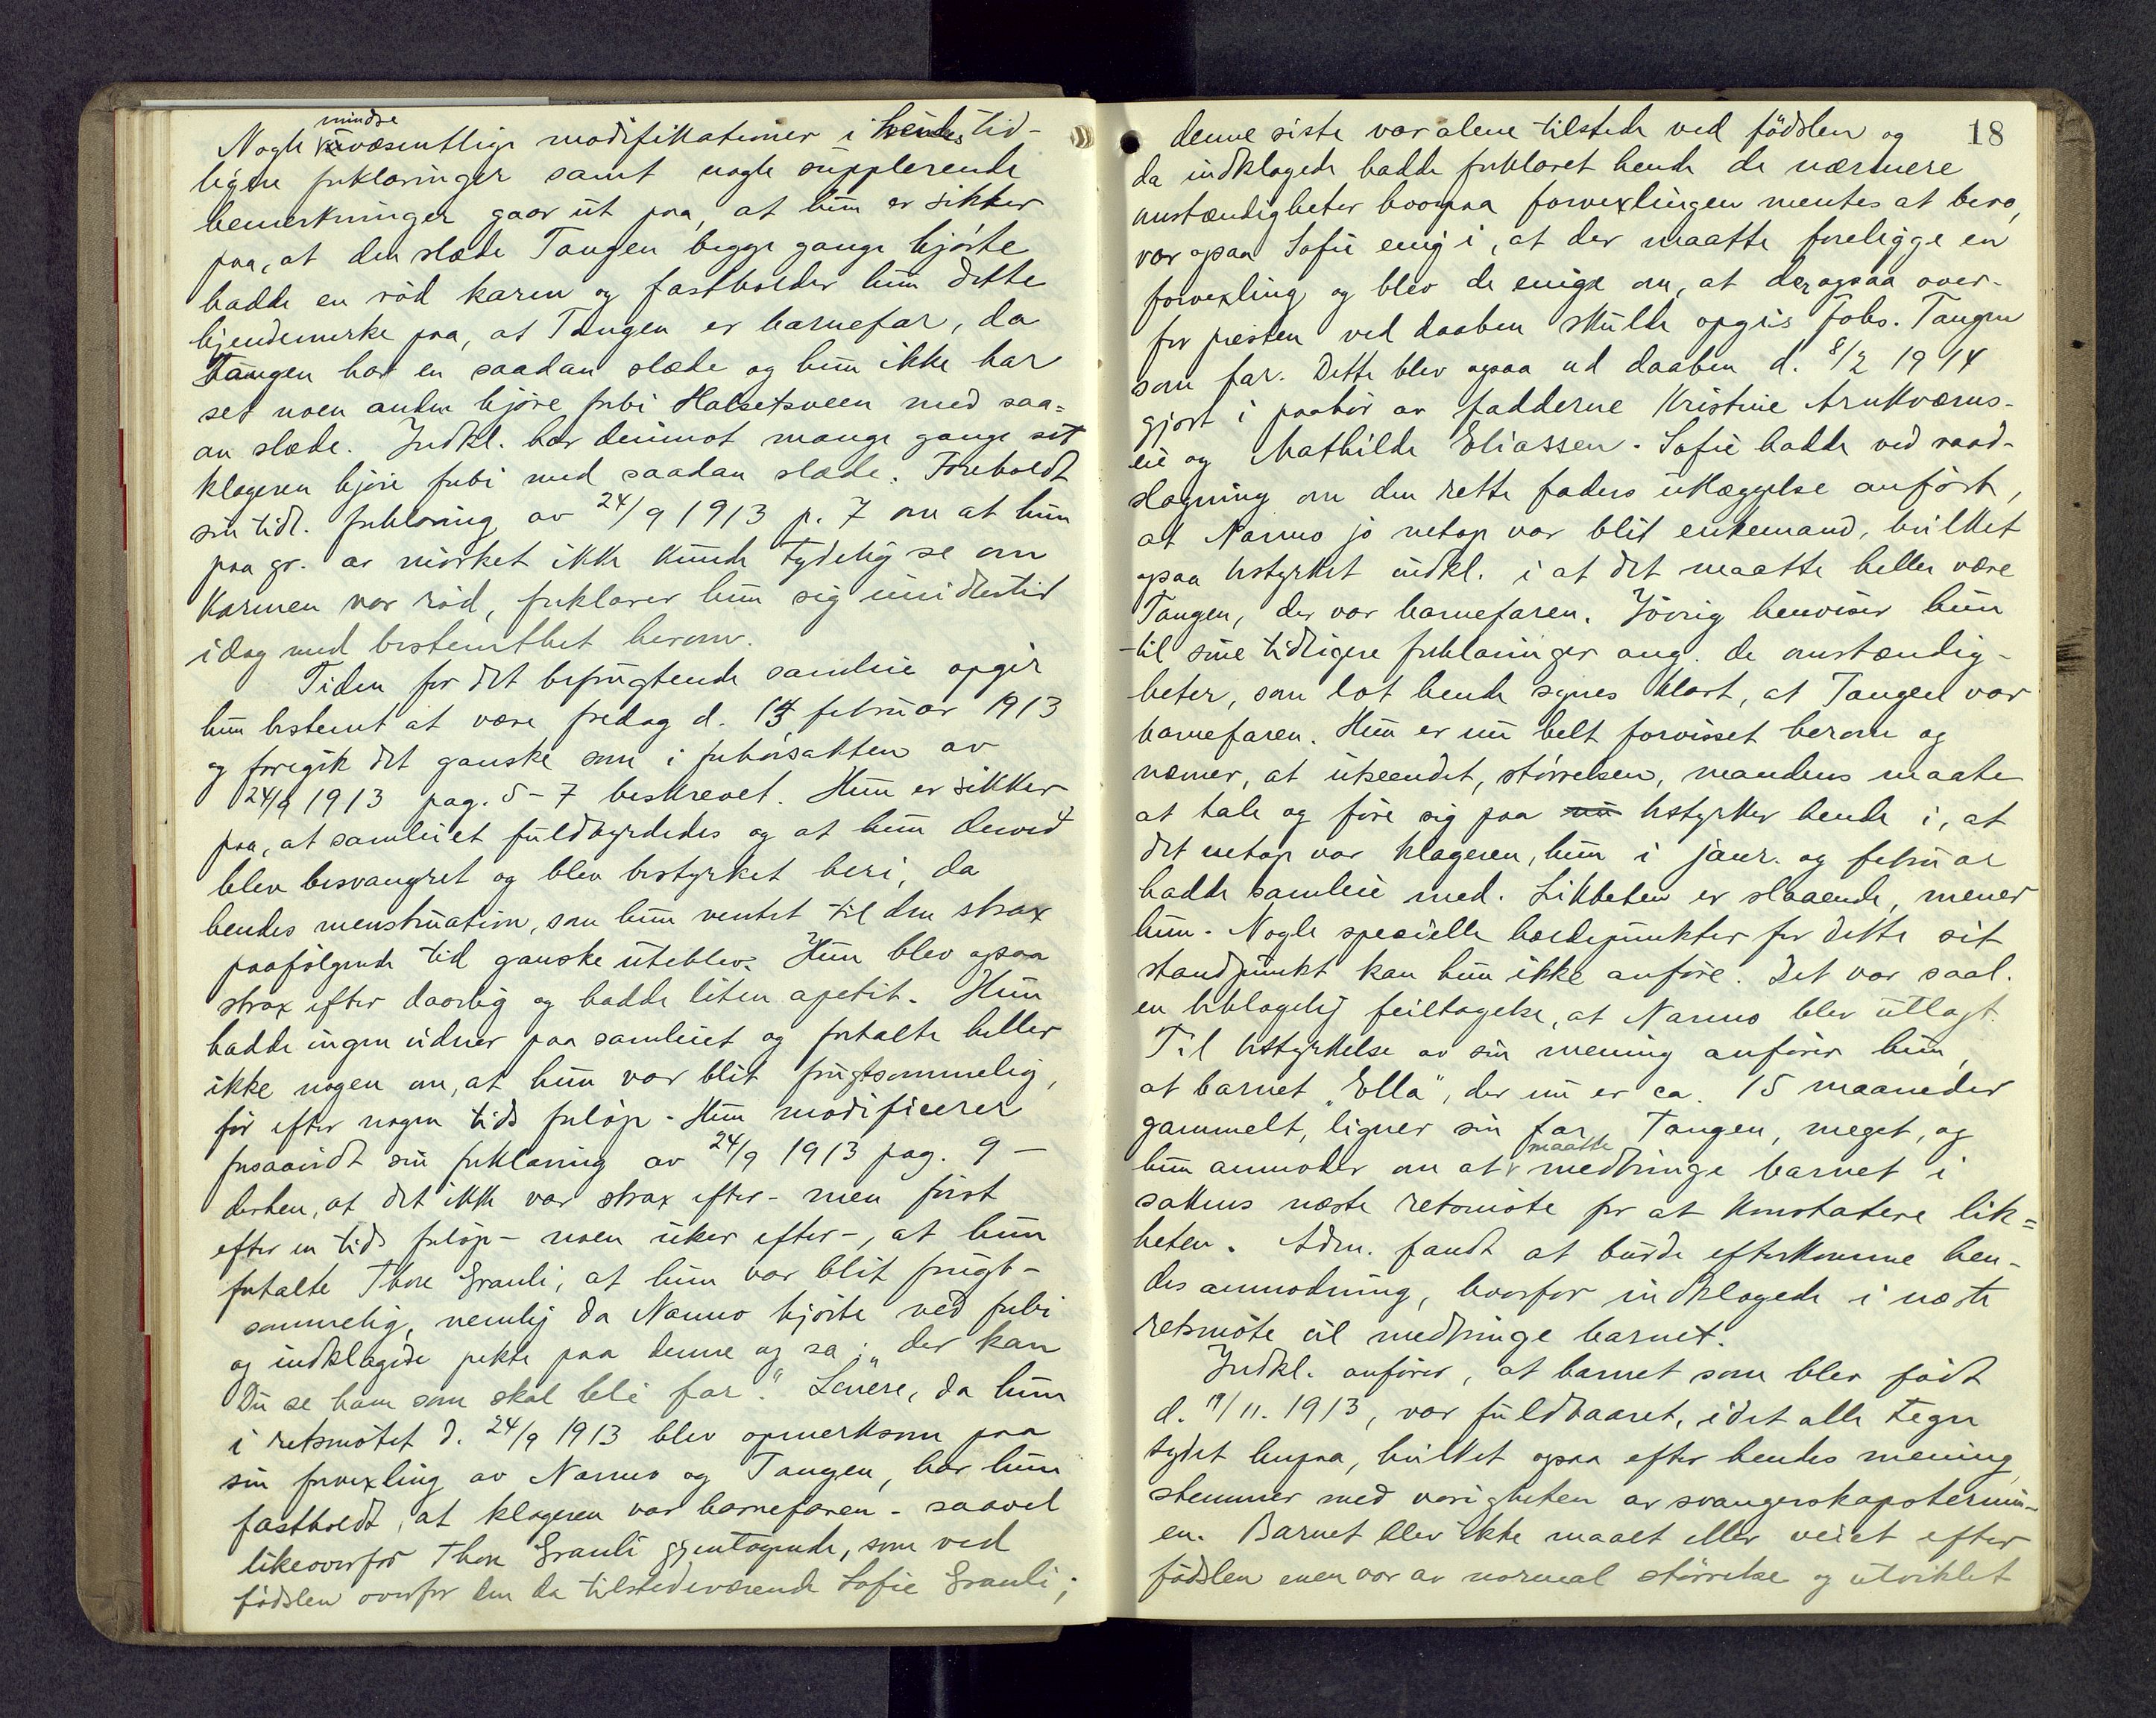 mindre
Nogle uvæsentlige modifikationer i hendes tid-
ligere forklaringer samt nogle supplerende
bemerkninger gaar ut paa, at hun er sikker
paa, at den slæde Tangen begge gange kjørte
hadde en rød karm og fastholder hun dette
kjendemerke paa, at Tangen er barnefar, da
Tangen har en saadan slæde og hun ikke har
set noen anden kjøre forbi Halsetsveen med saa=
an slæde. Indkl. har derimot mange gange set
klageren kjøre forbi med saadan slæde. Foreholdt
sin tidl. forklaring av 24/9 1913 p. 7 om at hun
paa gr. av mørket ikke kunde tydelig se om
karmen var rød, forklarer hun sig imidlertid
idag med bestemthet herom.
Tiden for det befrugtende samleie opgir
hun bestemt at være fredag d. 14 februar 1913
og foregik det ganske som i forhørsakten av
24/9 1913 pag. 5-7 beskrevet. Hun er sikker
paa, at samleiet fuldbyrdedes og at hun derved
blev besvangret og blev bestyrket heri, da
hendes menstruation, som hun ventet til den strax
paafølgende tid ganske uteblev. Hun blev ogsaa
strax efter daarlig og hadde liten apetit. Hun
hadde ingen vidner paa samleiet og fortalte heller
ikke nogen om, at hun var blit frugtsommelig,
før efter nogen tids forløp. Hun modificerer
forsaavidt sin forklaring av 24/9 1913 pag. 9 -
derhen, at det ikke var strax efter - men først
efter en tids forløp - noen uker efter -, at hun
fortalte Thore Grauli, at hun var blit frugt-
sommelig, nemlig da Narmo kjørte ved forbi
og indklagede pekte paa denne og sa: "der kan
Du se ham som skal bli far." Senere, da hun
i retsmøtet d. 24/9 1913 blev opmerksom paa
sin forvexling av Narmo og Tangen, har hun
fastholdt, at klageren var barnefaren - saavel
likeoverfor Thore Grauli gjentagende, som ved
fødslen overfor den da tilstedeværende Sofie Grauli;
18
denne siste var alene tilstede ved fødslen og
da indklagede hadde forklaret hende de nærmere
omstændigheter hvorpaa forvexlingen mentes at bero,
var ogsaa Sofie enig i, at der maatte foreligge en
forvexling og blev de enige om, at der ogsaa over-
for presten ved daaben skulde opgis Johs. Tangen
som far. Dette blev ogsaa ved daaben d. 8/2 1914
gjort i paahør av fadderne Kristine Arnkværns-
eie og Mathilde Eliassen. Sofie hadde ved raad-
slagning om den rette faders utlæggelse anført,
at Narmo jo netop var blit enkemand, hvilket
ogsaa bestyrket indkl. i at det maatte heller være
Tangen, der var barnefaren. Iøvrig henviser hun
til sine tidligere forklaringer ang. de omstændig-
heter, som lot hende synes klart, at Tangen var
barnefaren. Hun er nu helt forvisset herom og
nævner, at utseendet, størrelsen, mandens maate
at tale og føre sig paa nu bestyrker hende i, at
det netop var klageren, hun i janr. og februar
hadde samleie med. Likheten er slaaende, mener
hun. Nogle specielle holdepunkter for dette sit
standpunkt kan hun ikke anføre. Det var saal.
en beklagelig feiltagelse, at Narmo blev utlagt.
Til bestyrkelse av sin mening anfører hun,
at barnet "Ella", der nu er ca. 15 maaneder
gammelt, ligner sin far, Tangen, meget, og
hun anmoder om at maatte medbringe barnet i
sakens næste retsmøte for at konstatere lik=
heten. Adm. fandt at burde efterkomme hen-
des anmodning, hvorfor indklagede i næste
retsmøte vil medbringe barnet.
Indkl. anfører, at barnet som blev født
d. 19/11. 1913, var fuldbaaret, idet alle tegn
tydet herpaa, hvilket ogsaa efter hendes mening
stemmer med varigheten av svangerskapstermin-
en. Barnet blev ikke maalt eller veiet efter
fødslen men var av normal størrelse og utviklet